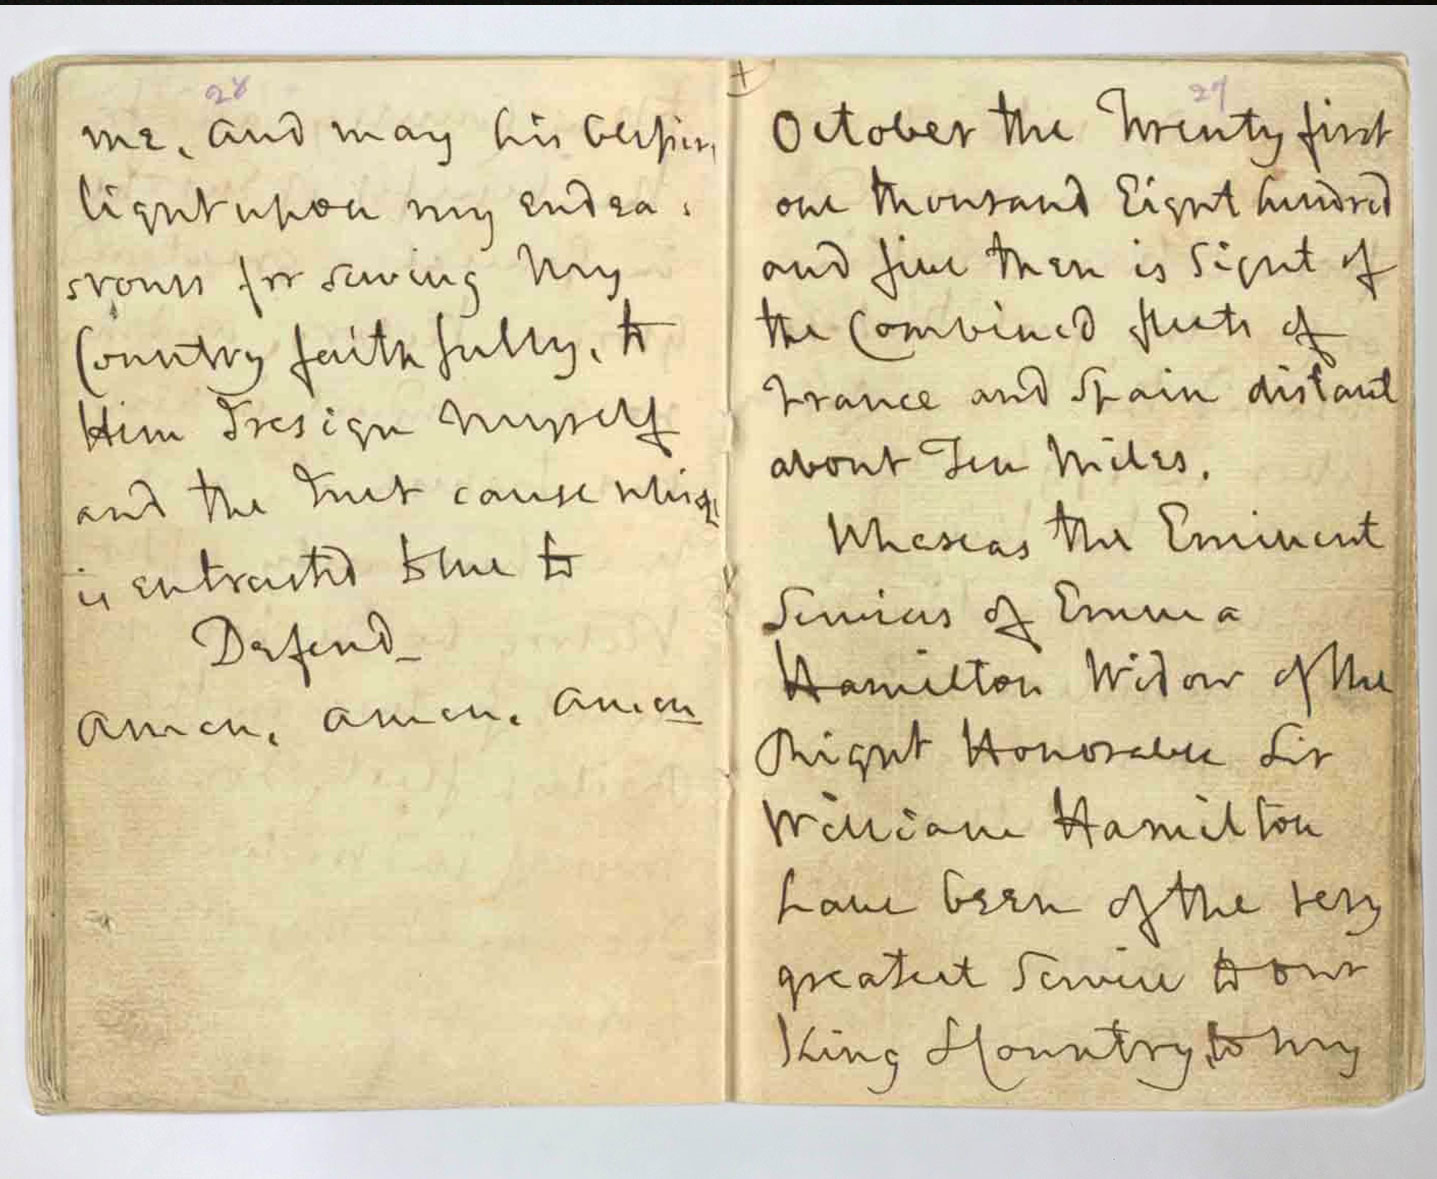 28
me, and may his blessing
light upon my endea:
vours for serving My
Country faithfully, to
Him I resign myself
and the Just cause which
is entrusted to me to
Defend_
amen, amen, amen
27
October the Twenty first
one thousand Eight hundred
and five then in Sight of
the Combined fleets of
France and Spain distant
about Ten Miles.
Whereas the Eminent
Services of Emma
Hamilton Widow of the
Right Honorable Sir
William Hamilton
have been of the very
greatest Service to our
King & Country, to my